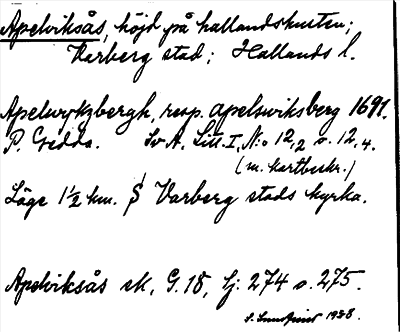 Apelviksås, höjd på hallandskusten;
Varberg stad; Hallands l.
Apelwykzbergh, resp. apelswiksberg 1691.
P. Gedda. Sv A. Litt. I, N:o 12,2 o. 12,4.
(m. kartbeskr.)
Läge 1 1/2 km. S Varberg stads kyrka.
Apelviksås ek, G. 18, bj: 274 o. 275.
S. 1938.